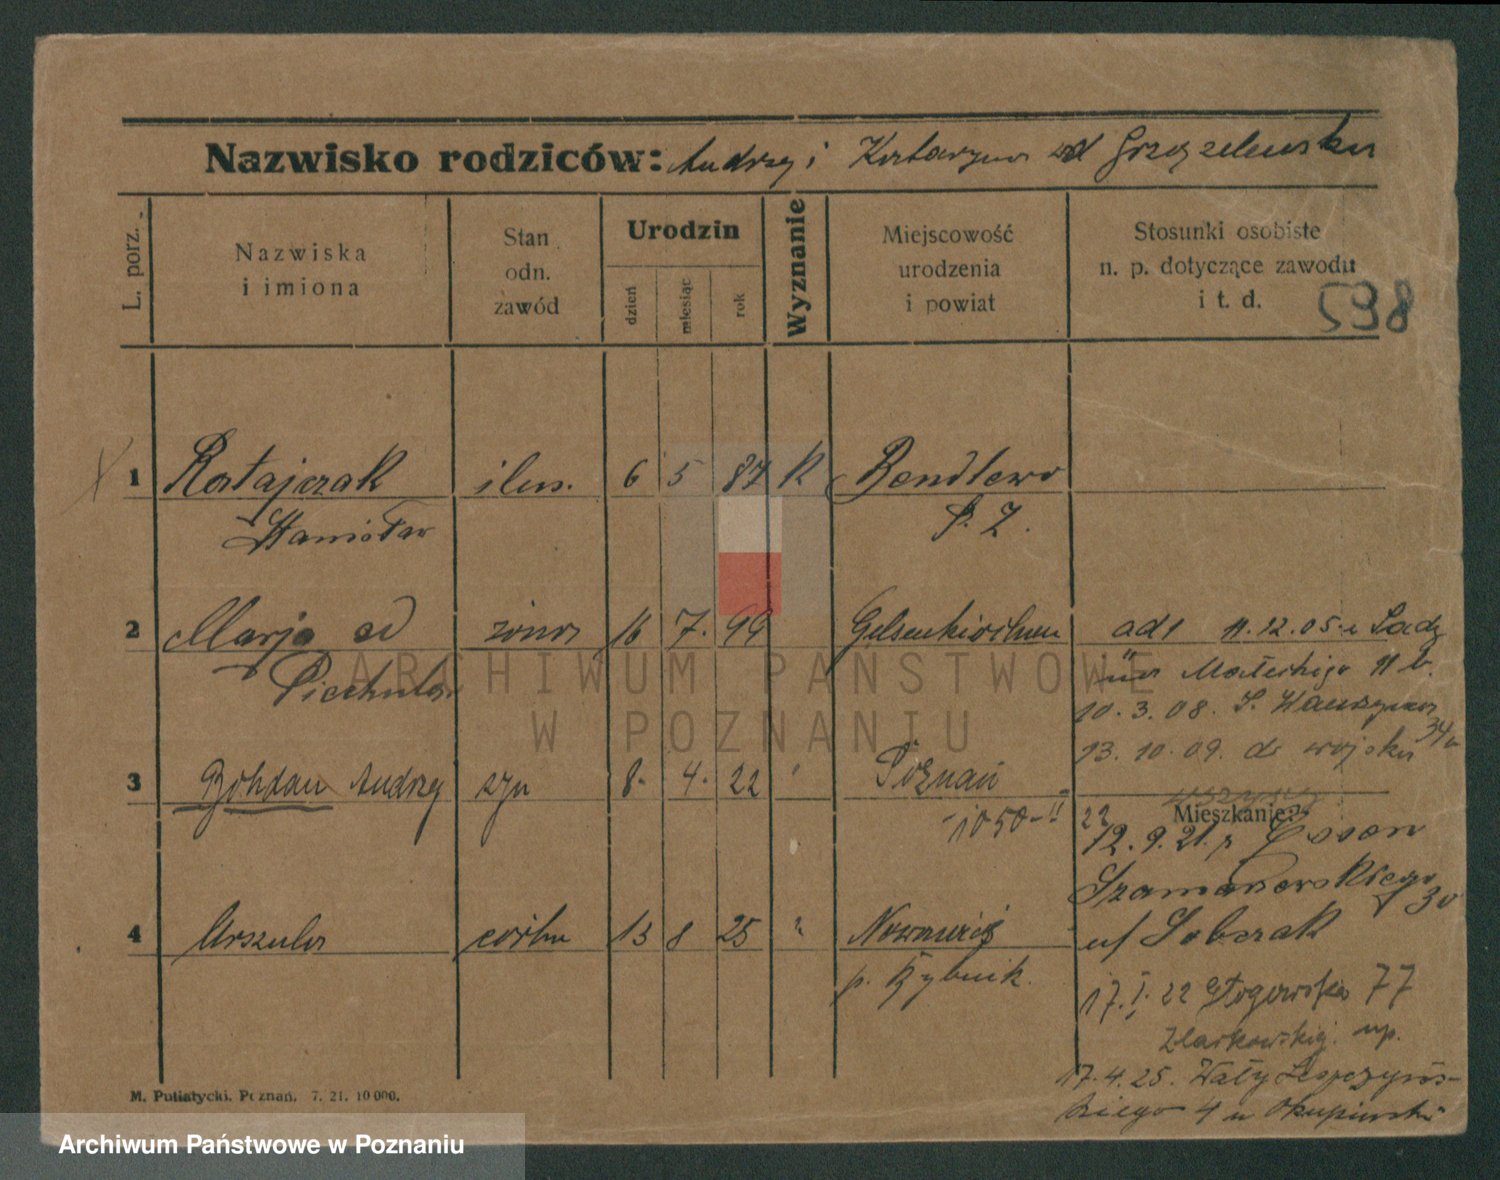 Nazwisko rodziców: Andrzej i Katarzyna od Grzęzelewska
L. porz.
Nazwiska i imiona
Stan odn. zawód
Urodzin
dzień
miesiąc
rok
Wyznanie
Miejscowość urodzenia i powiat
Stosunki osobiste n. p. dotyczące zawodu i t. d.
538
1 Ratajczak ślus. 6 5 87 K Bendlewo
Stanisław P. Z.
2 Marja od żona 16 7. 94 Gelsenkirchen ad 1 11.12.05 z
Piechula Małeckiego 11 b.
10. 3. 08. S.
34
13. 10. 09. do wojska
3 Bohdan Andrzej syn 8. 4. 22 " Poznań
-1050-"
Mieszkanie:
22
12. 9. 21. z Essen
Szamarzewskiego 30
u/ Sobczak
4 Urszula córka 13 8 25 " Nowawieś
p. Rybnik.
17. I. 22 Głogowska 77
17. 4. 25. Wały Leszczyńs-
kiego 4 u
M. Putiatycki, Poznań. 7. 21. 10 000.
ARCHIWUM PAŃSTWOWE
W POZNANIU
Archiwum Państwowe w Poznaniu